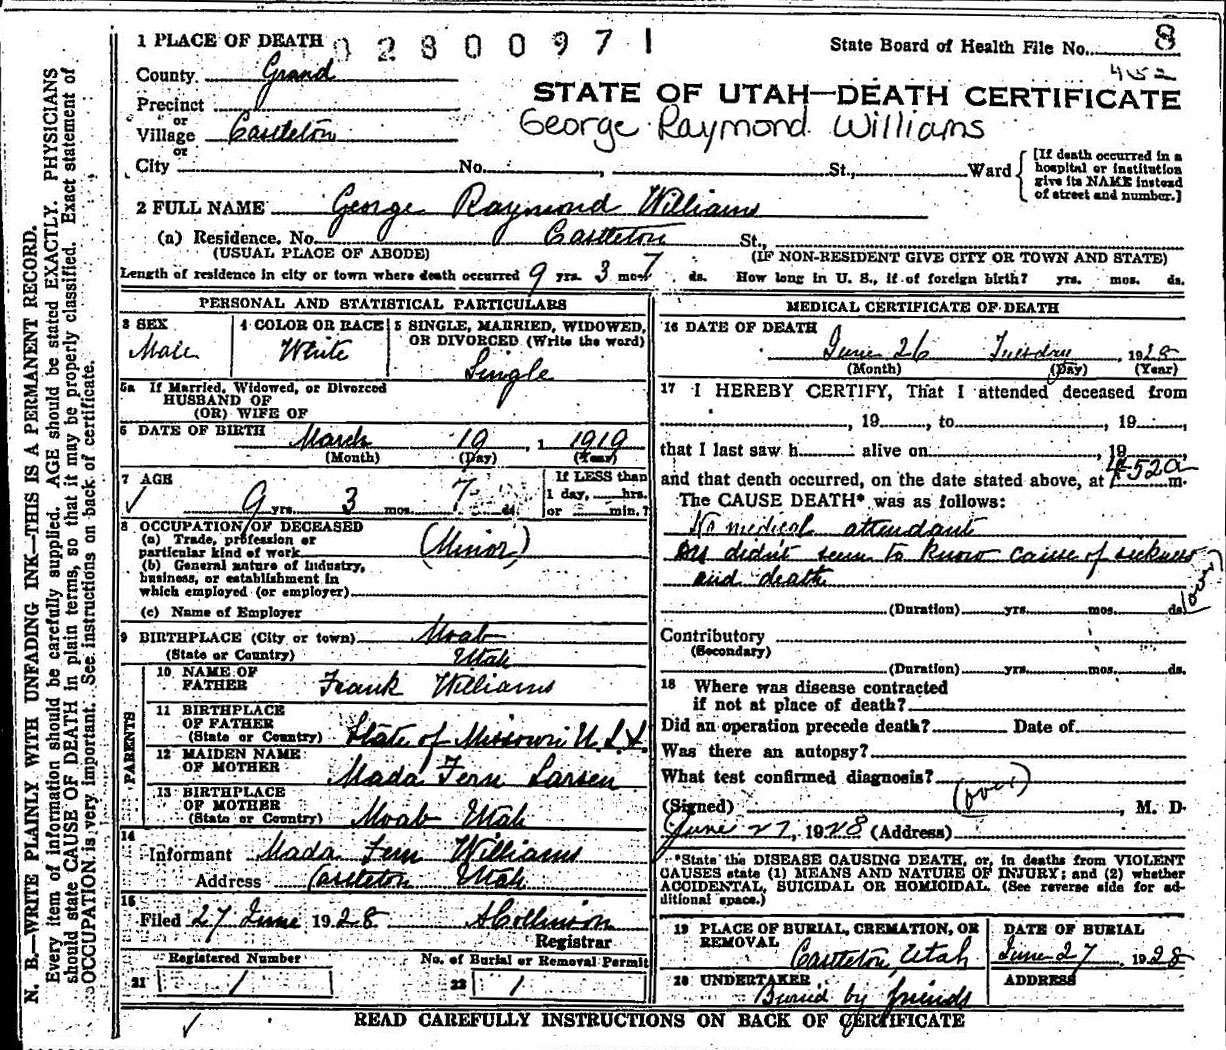 1 PLACE OF DEATH 02800971
State Board of Health File No. 8
452
County Grand
Precinct
or
Village Castleton
or
City No. , St., Ward
[If death occurred in a
hospital or institution
give its NAME instead
of street and number.]
STATE OF UTAH—DEATH CERTIFICATE
George Raymond Williams
2 FULL NAME George Raymond Williams
(a) Residence. No. Castleton St.,
(USUAL PLACE OF ABODE) (IF NON-RESIDENT GIVE CITY OR TOWN AND STATE)
Length of residence in city or town where death occurred 9 yrs. 3 mos. 7 ds. How long in U. S., if of foreign birth? yrs. mos. ds.
PERSONAL AND STATISTICAL PARTICULARS
3 SEX
Male
4 COLOR OR RACE
White
5 SINGLE, MARRIED, WIDOWED,
OR DIVORCED (Write the word)
Single
5a If Married, Widowed, or Divorced
HUSBAND OF
(OR) WIFE OF
6 DATE OF BIRTH March 19, 1919
(Month) (Day) (Year)
7 AGE
9 yrs. 3 mos. 7 ds.
If LESS than
1 day, hrs.
or min.?
8 OCCUPATION OF DECEASED
(a) Trade, profession or
particular kind of work (Minor)
(b) General nature of industry,
business, or establishment in
which employed (or employer)
(c) Name of Employer
9 BIRTHPLACE (City or town) Moab
(State or Country) Utah
PARENTS
10 NAME OF
FATHER Frank Williams
11 BIRTHPLACE
OF FATHER
(State or Country) State of Missouri U.S.A.
12 MAIDEN NAME
OF MOTHER Mada Fern Larsen
13 BIRTHPLACE
OF MOTHER
(State or Country) Moab Utah
14
Informant Mada Fern Williams
Address Castleton Utah
15
Filed 27 June 1928 A Collinson
Registrar
Registered Number No. of Burial or Removal Permit
21 1 22 1
MEDICAL CERTIFICATE OF DEATH
16 DATE OF DEATH
June 26 Tuesday, 1928
(Month) (Day) (Year)
17 I HEREBY CERTIFY, That I attended deceased from
, 19 , to , 19 ,
that I last saw h alive on , 19
and that death occurred, on the date stated above, at 4:52 a m.
The CAUSE DEATH* was as follows:
No medical attendant
didn't seem to know cause of sickness
and death
(Duration) yrs. mos. ds.
Contributory
(Secondary)
(Duration) yrs. mos. ds.
18 Where was disease contracted
if not at place of death?
Did an operation precede death? Date of
Was there an autopsy?
What test confirmed diagnosis?
(over)
(Signed) , M. D.
June 27, 1928 (Address)
*State the DISEASE CAUSING DEATH, or, in deaths from VIOLENT
CAUSES state (1) MEANS AND NATURE OF INJURY; and (2) whether
ACCIDENTAL, SUICIDAL OR HOMICIDAL. (See reverse side for ad-
ditional space.)
19 PLACE OF BURIAL, CREMATION, OR
REMOVAL
Castleton, Utah
DATE OF BURIAL
June 27, 1928
20 UNDERTAKER
Buried by friends
ADDRESS
READ CAREFULLY INSTRUCTIONS ON BACK OF CERTIFICATE
N. B.—WRITE PLAINLY WITH UNFADING INK—THIS IS A PERMANENT RECORD.
Every item of information should be carefully supplied. AGE should be stated EXACTLY. PHYSICIANS
should state CAUSE OF DEATH in plain terms, so that it may be properly classified. Exact statement of
OCCUPATION is very important. See instructions on back of certificate.